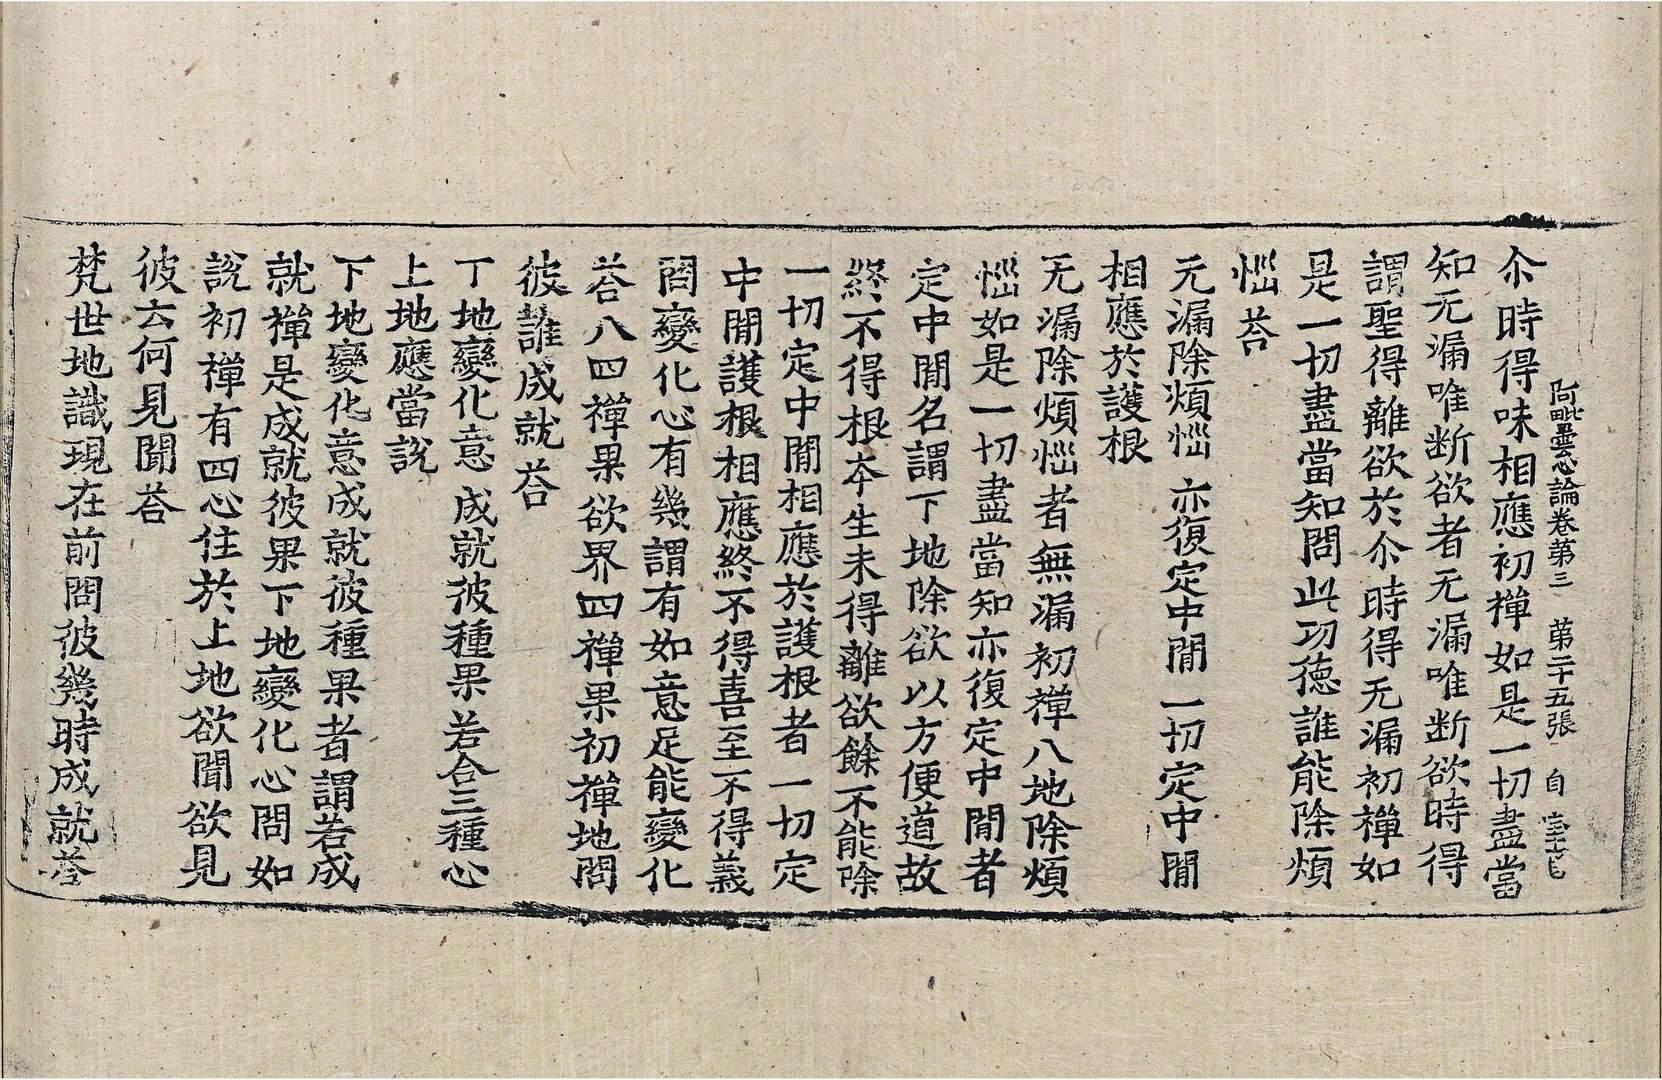 阿毗曇心論卷第三　第二十五張　自
尒時得味相應初禪如是一切盡當
知无漏唯断欲者无漏唯断欲時得
謂聖得離欲於尒時得无漏初禪如
是一切盡當知問此功德誰能除煩
惱荅
无漏除煩惱　亦復定中閒　一切定中閒
相應於護根
无漏除煩惱者無漏初禪八地除煩
惱如是一切盡當知亦復定中閒者
定中閒名謂下地除欲以方便道故
終不得根夲生未得離欲餘不能除
一切定中閒相應於護根者一切定
中閒護根相應終不得喜至不得義
問變化心有幾謂有如意足能變化
荅八四禪果欲界四禪果初禪地問
彼誰成就荅
丁地變化意　成就彼種果　若合三種心
上地應當說
下地變化意成就彼種果者謂若成
就禪是成就彼果下地變化心問如
說初禪有四心住於上地欲聞欲見
彼云何見聞荅
梵世地識現在前問彼幾時成就荅